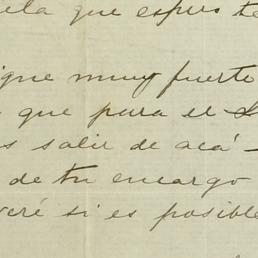 que espero te
igue muy fuerte
que para el
s salir de acá -
de tu encargo
veré si es posible